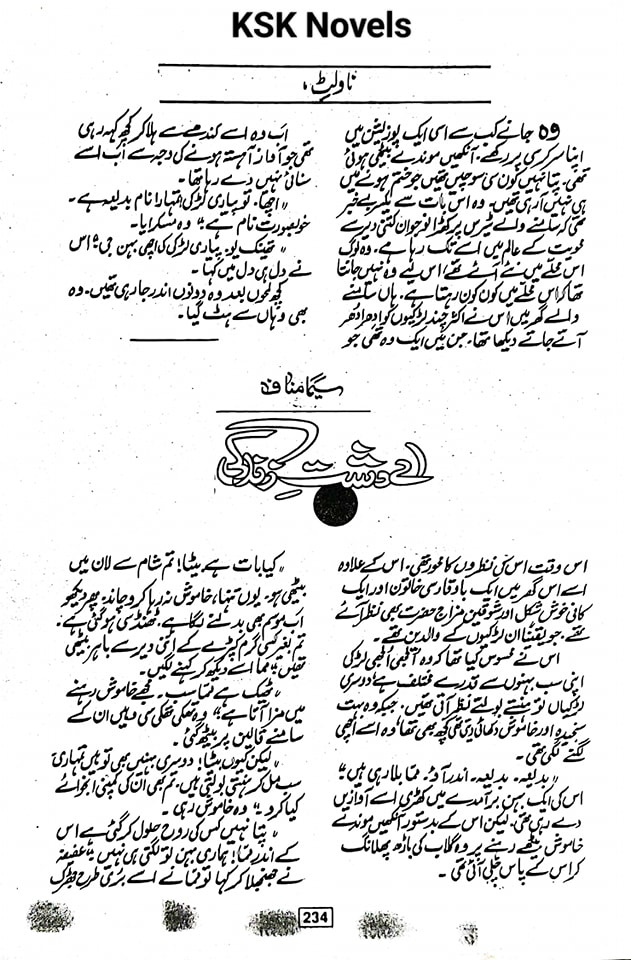 KSK Novels
ناولٹ
وہ جانے کب سے اسی ایک پوزیشن میں
اپنا سر کرسی پر رکھے، آنکھیں موندے بیٹھی ہوئی
تھی۔ پتا نہیں کون سی سوچیں تھیں جو ختم ہونے میں
ہی نہیں آرہی تھیں۔ وہ اس بات سے یکسر بے خبر
تھی کہ سامنے والے ٹیرس پر کھڑا نوجوان کتنی دیر سے
محویت کے عالم میں اسے تک رہا ہے۔ وہ لوگ
اس محلے میں نئے آئے تھے، اس لیے وہ نہیں جانتا
تھا کہ اس محلے میں کون کون رہتا ہے۔ ہاں سامنے
والے گھر میں اس نے اکثر چند لڑکیوں کو ادھر ادھر
آتے جاتے دیکھا تھا، جن میں ایک وہ تھی جو
اب وہ اسے کندھے سے ہلا کر کچھ کہہ رہی
تھی جو آواز آہستہ ہونے کی وجہ سے اب اسے
سنائی نہیں دے رہا تھا۔
”اچھا۔ تو پیاری لڑکی! تمہارا نام بدیعہ ہے۔
خوبصورت نام ہے“ وہ مسکرایا۔
”تھینک یو۔ پیاری لڑکی کی اچھی بہن جی“ اس
نے دل ہی دل میں کہا۔
کچھ لمحوں بعد وہ دونوں اندر جا رہی تھیں۔ وہ
بھی وہاں سے ہٹ گیا۔
سیما مناف
اے دشت
کی
اس وقت اس کی نظروں کا محور تھی۔ اس کے علاوہ
اسے اس گھر میں ایک باوقار سی خاتون اور ایک
کافی خوش شکل اور شوقین مزاج حضرت بھی نظر آئے
تھے۔ جو یقیناً ان لڑکیوں کے والدین تھے۔
اس نے محسوس کیا تھا کہ وہ الجھی الجھی لڑکی
اپنی سب بہنوں سے قدرے مختلف ہے، دوسری
لڑکیاں تو ہنستے بولتے نظر آتی تھیں۔ جبکہ وہ بہت
سنجیدہ اور خاموش دکھائی دیتی تھی کچھ بھی تھا، وہ اسے اچھی
لگنے لگی تھی۔
”بدیعہ۔ بدیعہ۔ اندر آؤ۔ مما بلا رہی ہیں“
اس کی ایک بہن برآمدے میں کھڑی اسے آوازیں
دے رہی تھی، لیکن اس کے بدستور آنکھیں موندنے
خاموش بیٹھے رہنے پر وہ گلاب کی باڑھ پھلانگ
کر اس کے پاس چلی آئی تھی۔
”کیا بات ہے بیٹا! تم شام سے لان میں
بیٹھی ہو۔ یوں تنہا، خاموش نہ رہا کرو چاند، پھر دیکھو
اب موسم بھی بدلنے لگا ہے۔ ٹھنڈ سی ہو گئی ہے۔
تم بغیر کسی گرم کپڑے کے اتنی دیر سے باہر بیٹھی
تھیں“ مما اسے دیکھ کر کہنے لگیں۔
”ٹھیک ہے مما سب۔ مجھے خاموش رہنے
میں مزا آتا ہے“ وہ تھکی تھکی سی وہیں ان کے
سامنے قالین پر بیٹھ گئی۔
”لیکن کیوں بیٹا! دوسری بہنیں بھی تو ہیں تمہاری
سب مل کر ہنستی بولتی ہیں۔ تم بھی ان کی کمپنی انجوائے
کیا کرو“ وہ خاموش رہی۔
”پتا نہیں کس کی روح حلول کر گئی ہے اس
کے اندر مما! ہماری بہن تو لگتی ہی نہیں“ عفیفہ
نے جھنجھلا کر کہا تو مما نے اسے بری طرح جھڑک
234